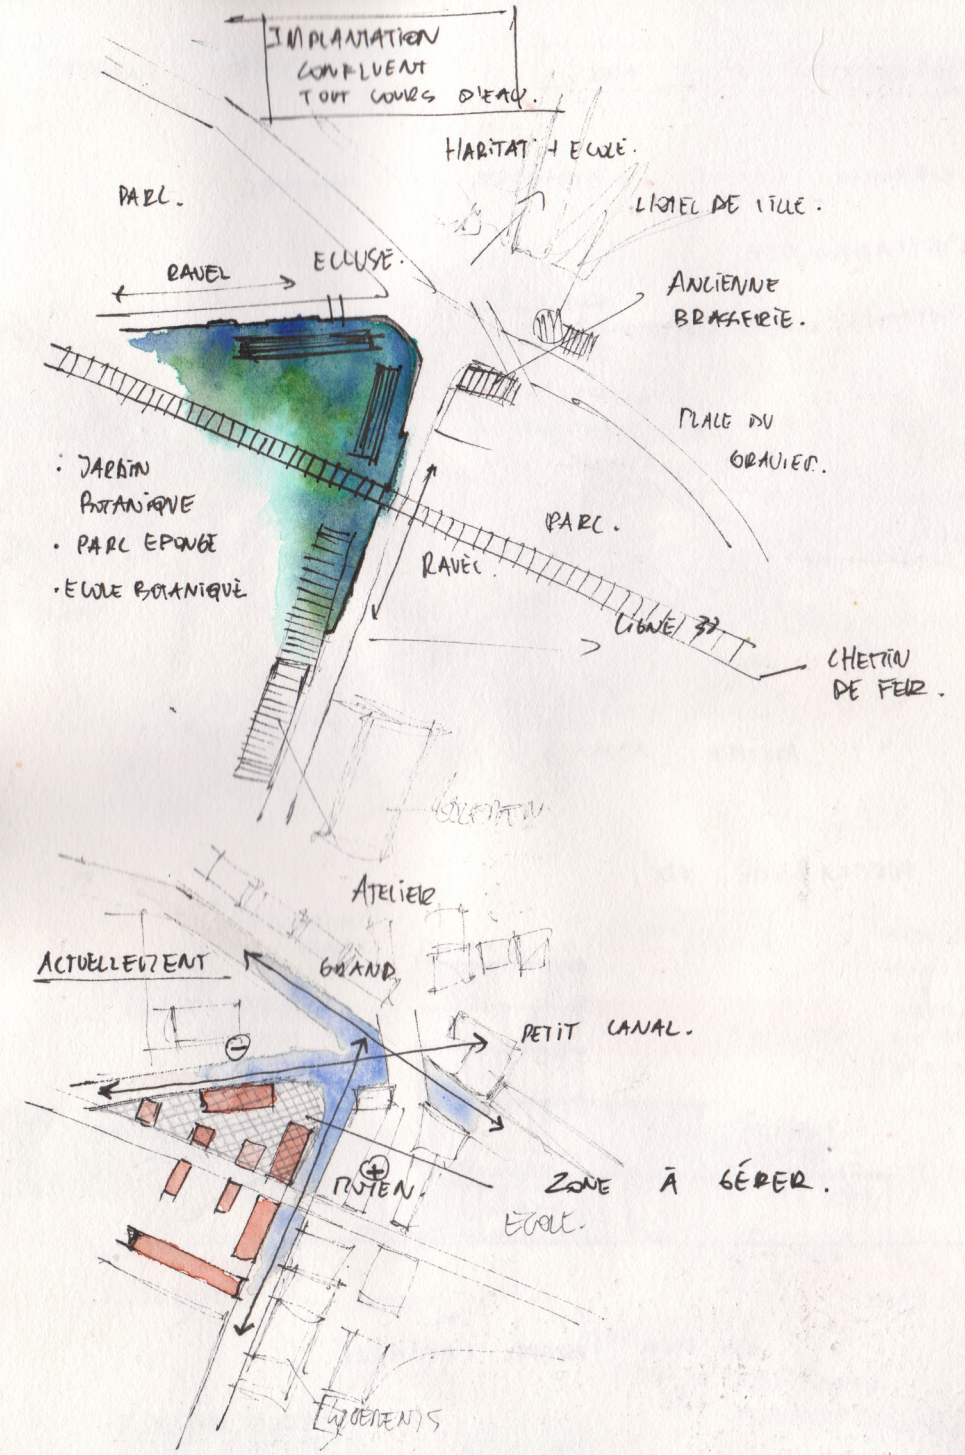 IMPLANTATION
CONFLUENT
TOUT COURS D'EAU.
HABITAT + ECOLE.
PARC.
HOTEL DE VILLE.
ECLUSE.
RAVEL
ANCIENNE
BRASSERIE.
PLACE DU
GRAVIER.
• JARDIN
BOTANIQUE
• PARC EPONGE
• ECOLE BOTANIQUE
PARC.
RAVEL.
LIGNE
CHEMIN
DE FER.
ATELIER
ACTUELLEMENT
GRAND
PETIT CANAL.
MOYEN.
ZONE À GÉRER.
ECOLE.